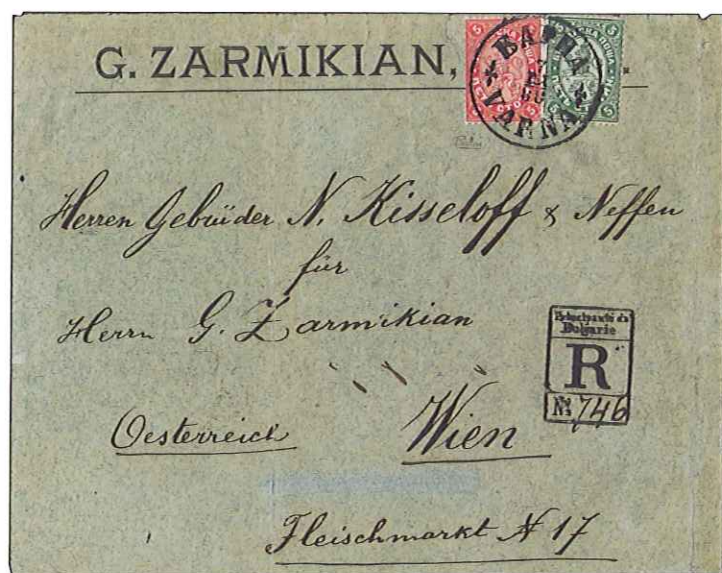 G. ZARMIKIAN,
5 5
ВАРНА
VARNA
Herren Gebrüder N. Kisseloff & Neffen
für
Herrn G. Zarmikian
Principauté de
Bulgarie
R
No. 746
Oesterreich Wien
Fleischmarkt N 17